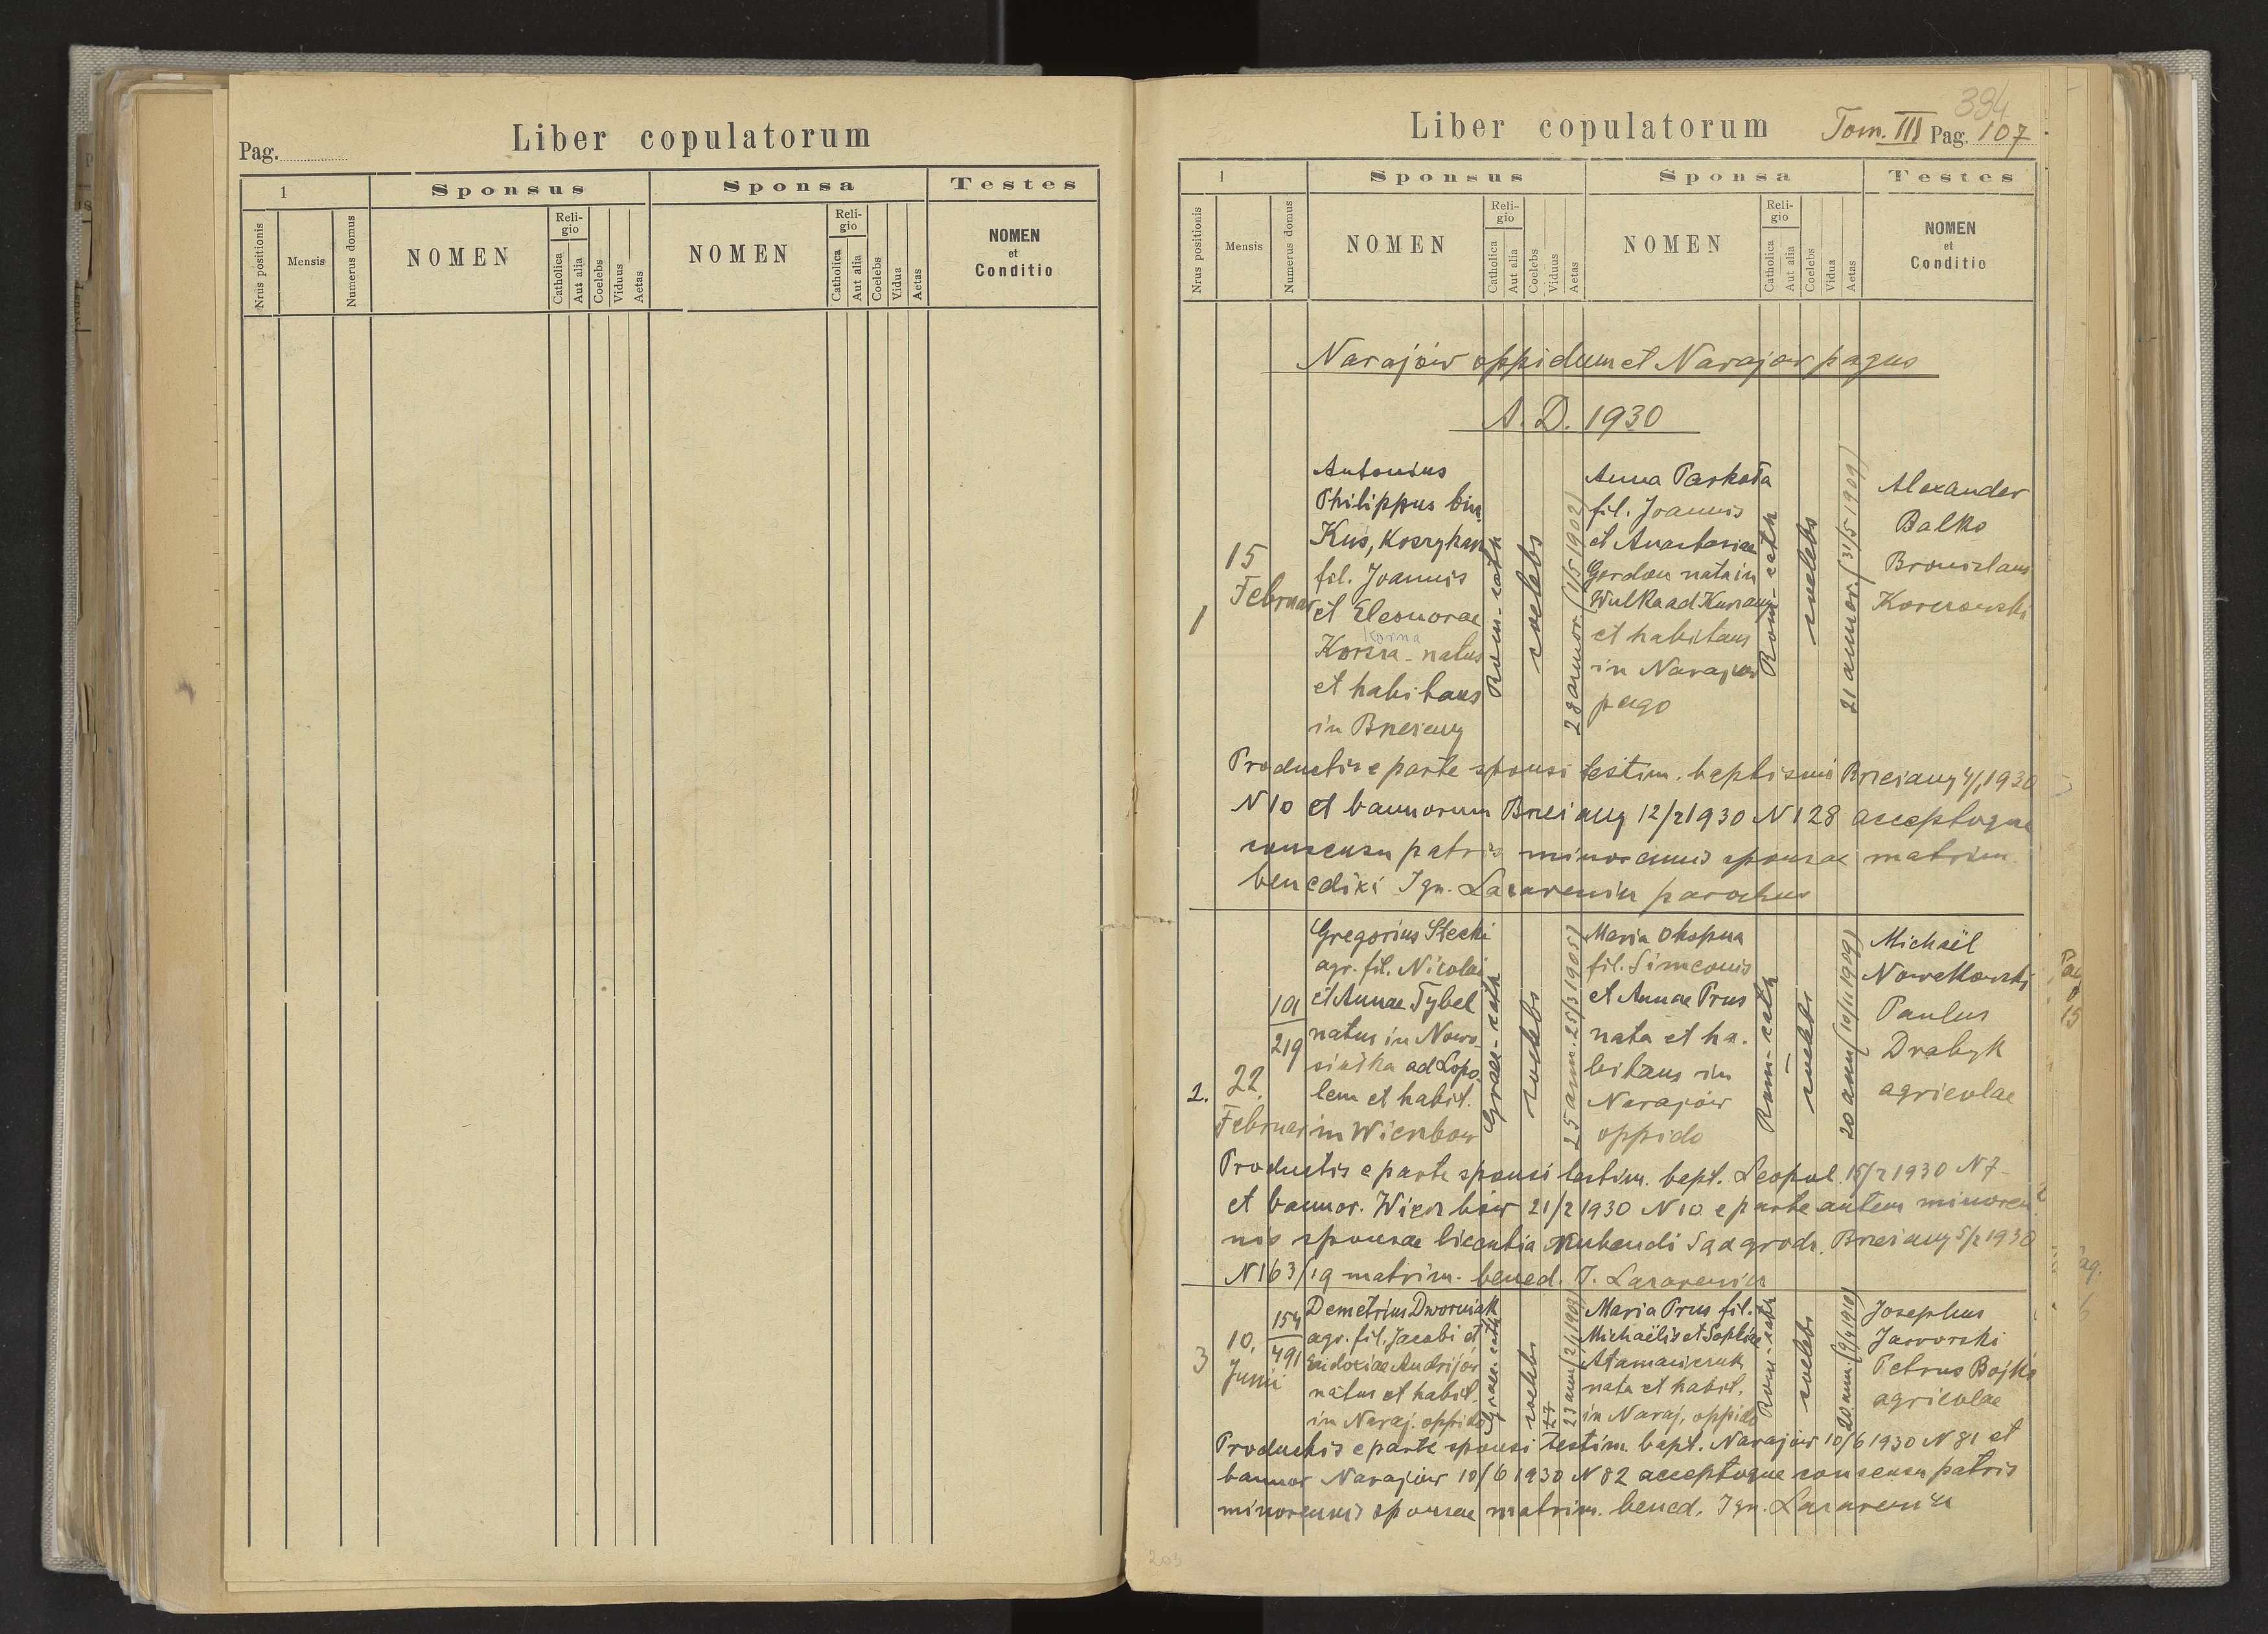 Liber copulatorum
Pag.
1
Sponsus
Sponsa
Testes
Nrus positionis
Mensis
Numerus domus
NOMEN
Reli-
gio
Catholica
Aut alia
Coelebs
Viduus
Aetas
NOMEN
Reli-
gio
Catholica
Aut alia
Coelebs
Vidua
Aetas
NOMEN
et
Conditio
394
Liber copulatorum
Tom. III Pag. 107
1
Sponsus
Sponsa
Testes
Nrus positionis
Mensis
Numerus domus
NOMEN
Reli-
gio
Catholica
Aut alia
Coelebs
Viduus
Aetas
NOMEN
Reli-
gio
Catholica
Aut alia
Coelebs
Vidua
Aetas
NOMEN
et
Conditio
Narajów oppidum et Narajów pagus
A. D. 1930
1
15
Februar
Antonius
Philippus bin.
Kuś,
fil. Joannis
et Eleonorae
Korna
natus
et habitans
in Brzeżany
Rom-cath
coelebs
28 annor. (1/5 1902)
Anna Parkoła
fil. Joannis
et Anastasiae
Gordon nata in
Wulka ad
et habitans
in Narajów
pago
Rom-cath
coelebs
21 annor. (31/5 1909)
Alexander
Balko
Bronislaus
Productis e parte sponsi testim. baptismi Brzeżany 4/1 1930
N 10 et bannorum Brzeżany 12/2 1930 N 128 acceptoque
consensu patris minorennis sponsae matrim.
benedixi Ign. Lazarewicz parochus
2.
22.
Februar
101
219
Gregorius Stecki
agr. fil. Nicolai
et Annae Tybel
natus in Nowo-
siółka ad Lopo-
lem et habit.
in Wierzbow
Graec-cath
coelebs
25 ann. 25/3 1905)
Maria Okopna
fil. Simeonis
et Annae Prus
nata et ha-
bitans in
Narajów
oppido
Rom-cath
coelebs
20 ann (10/11 1909)
Michaël
Nowakowski
Paulus
Drabyk
agricolae
Productis e parte sponsi testim. bapt. Leopol. 15/2 1930 N 7
et bannor. Wierzbów 21/2 1930 N 10 e parte autem minoren
nis sponsae licentia nubendi Sąd grodz. Brzeżany 5/2 1930
N 163/19 matrim. bened. I. Lazarewicz
3
10.
Junii
154
491
Demetrius Dworniak
agr. fil. Jacobi et
Eudoxiae Andrijów
natus et habit.
in Naraj. oppido
Graec-cath
coelebs
27
23 ann (2/1 1903)
Maria Prus fil.
Michaëlis et Sophiae
Atamańczuk
nata et habit.
in Naraj. oppido
Rom-cath
coelebs
20 ann. (9/4 1910)
Josephus
Jaworski
Petrus Bojko
agricolae
Productis e parte sponsi testim. bapt. Narajów 10/6 1930 N 81 et
bannor Narajów 10/6 1930 N 82 acceptoque consensu patris
minorennis sponsae matrim. bened. Ign. Lazarewicz
203